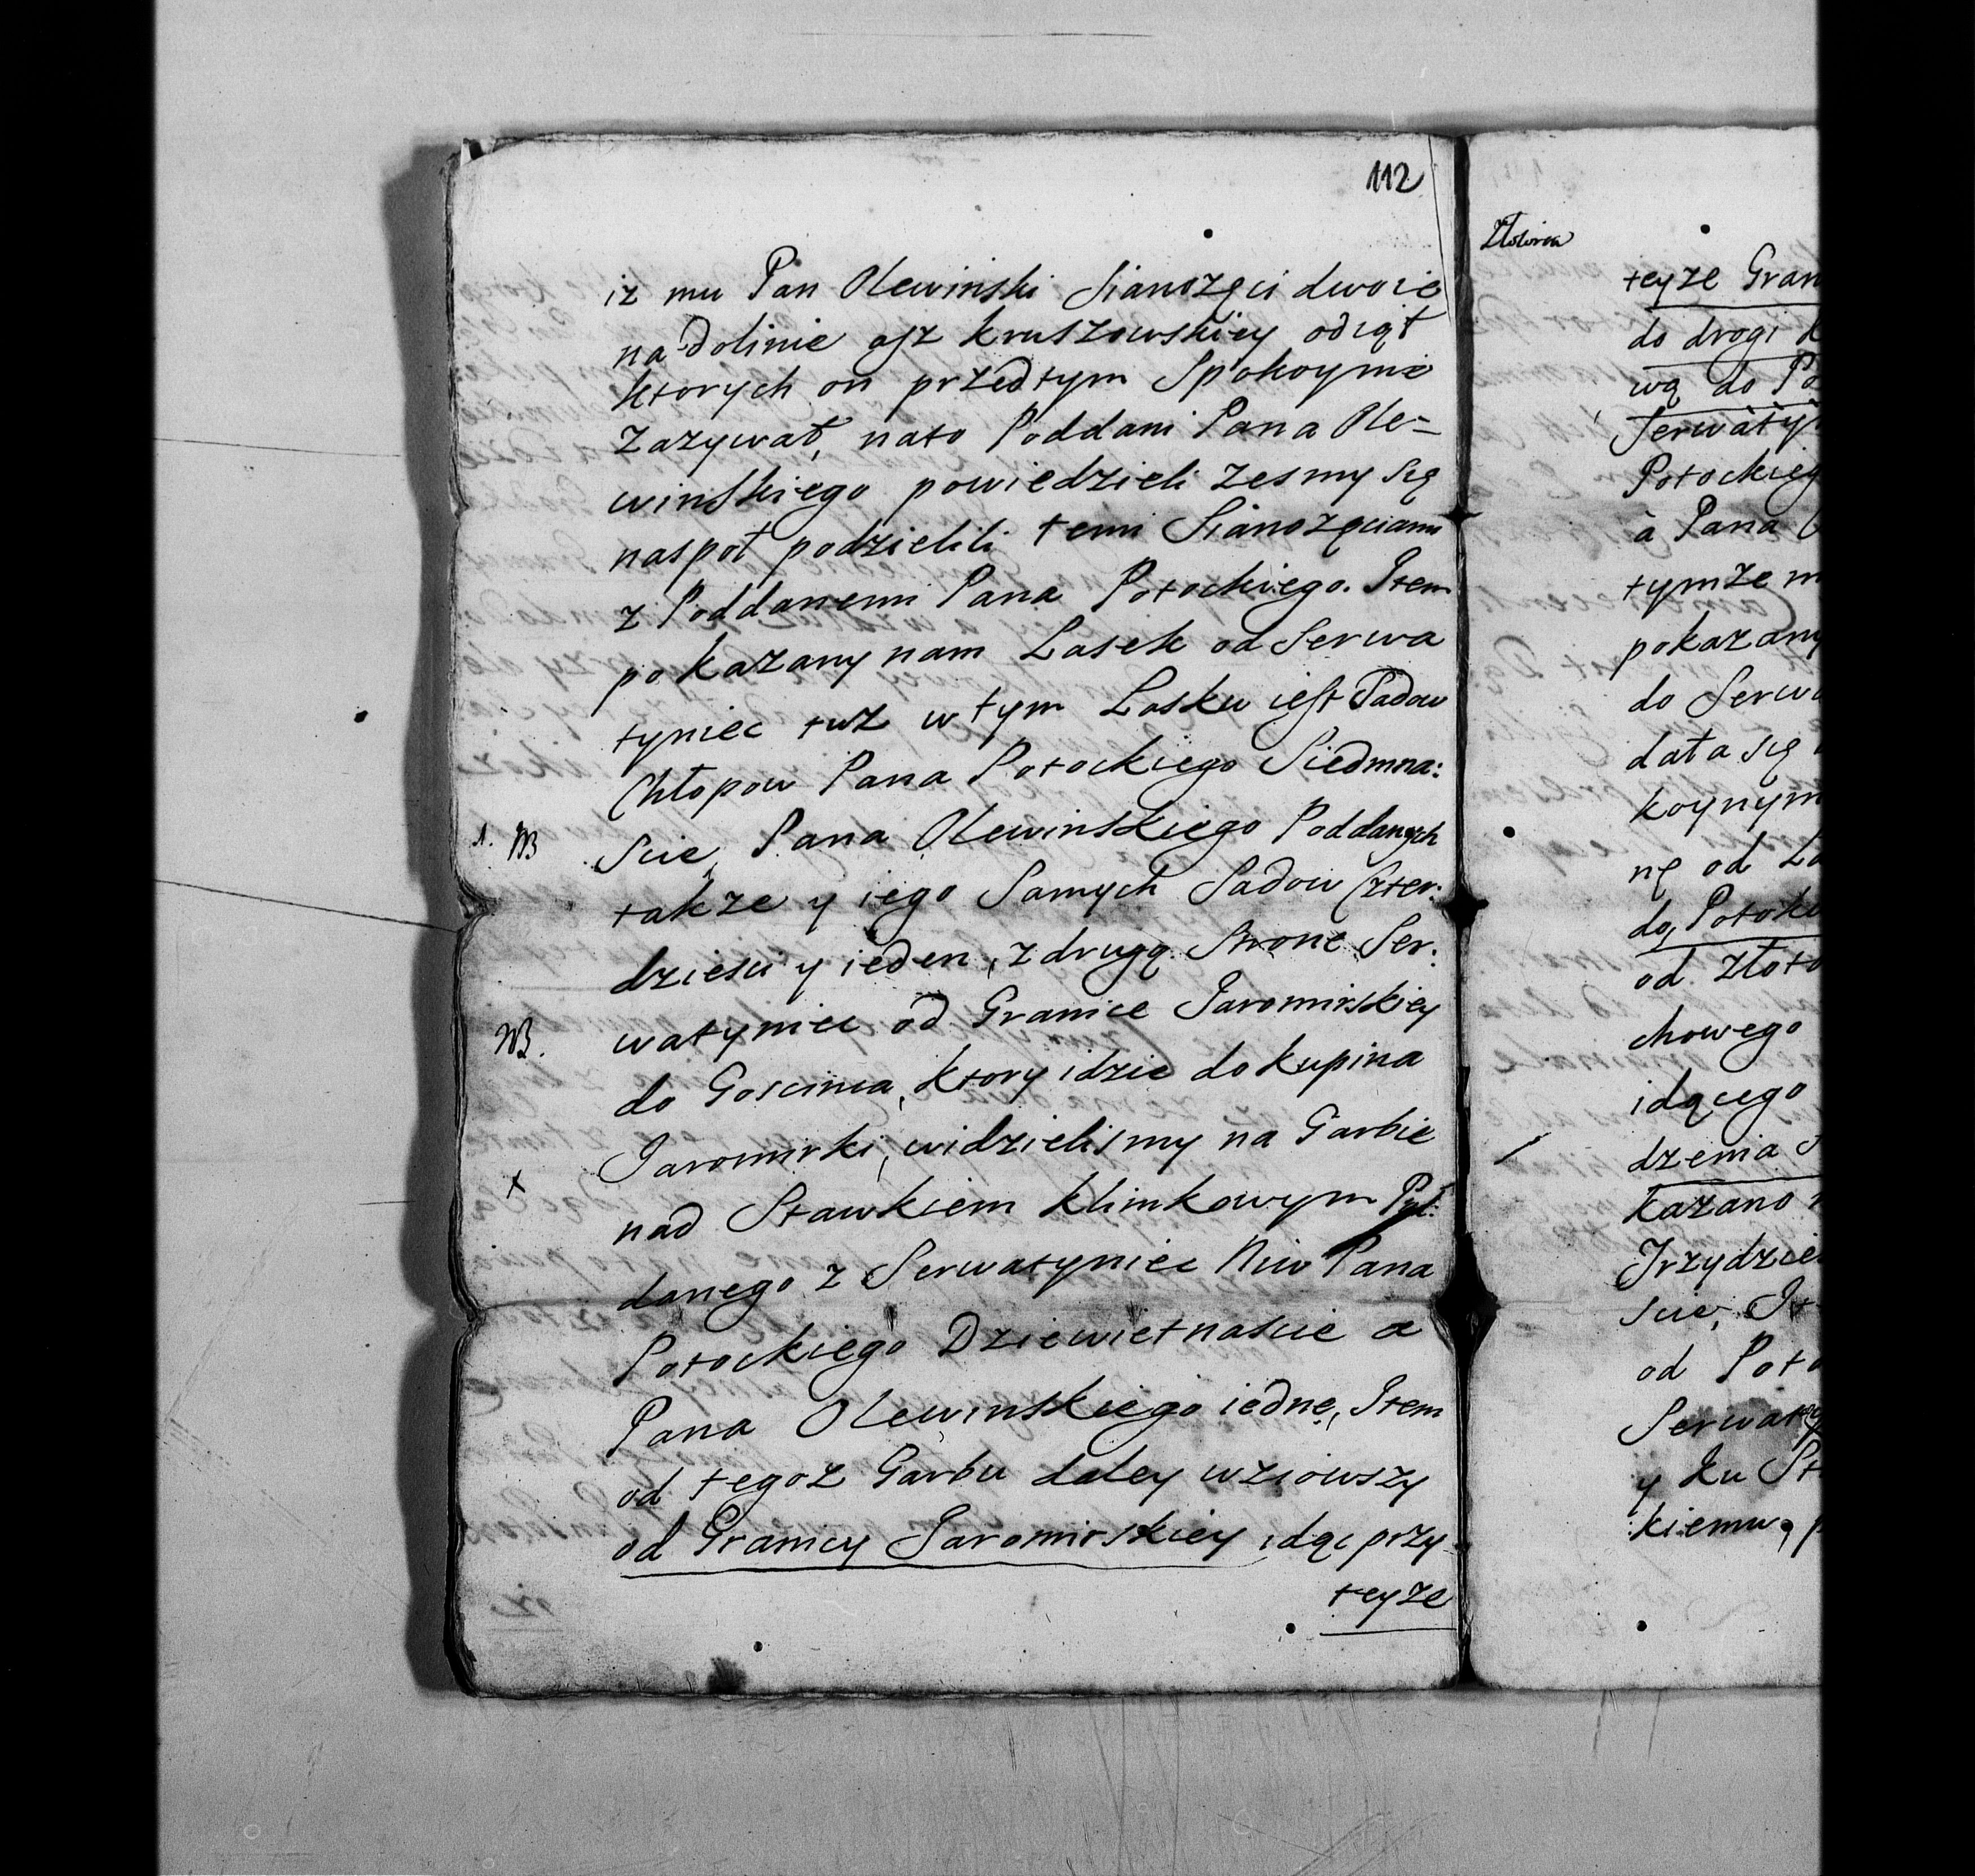 112
iz mu Pan Olewinski Sianozęci dwoie
na dolinie asz kruszowskiey odiął
ktorych on przedtym Spokoynie
Zazywał, nato Poddani Pana Ole=
winskiego powiedzieli zesmy się
naspoł podzielili temi Sianozęciami
z Poddanemi Pana Potockiego. Item
pokazany nam Lasek od Serwa
tyniec tuz w tym Lasku iest Sadow
Chłopow Pana Potockiego Siedmna:
1. NB scie, Pana Olewinskiego Poddanych
takze y iego Samych Sadow Czter:
dziesci y ieden, z drugą Strone Ser:
NB. watyniec od Granice Jaromirskiey
do Goscinca, ktory idzie do Kupina
Jaromirki, widzielismy na Garbie
x nad Stawkiem Klimkowym
danego z Serwatyniec Niw Pana
Potockiego Dziewietnascie a
Pana Olewinskiego iednę, Item
od tegoz Garbu daley wziowszy
od Granicy Jaromirskiey idąc przy
teyze
Złotorea
teyze Gran
do drogi k
wą do Po
Serwaty
Potockieg
à Pana
tymze m
pokazany
do Serwa
dała się
koynym
nę od La
do Potoku
od złoto
chowego
idącego
dzenia
kazano
Trzydzie
scie, It
od Poto
Serwaty
y ku St
kiemu, p